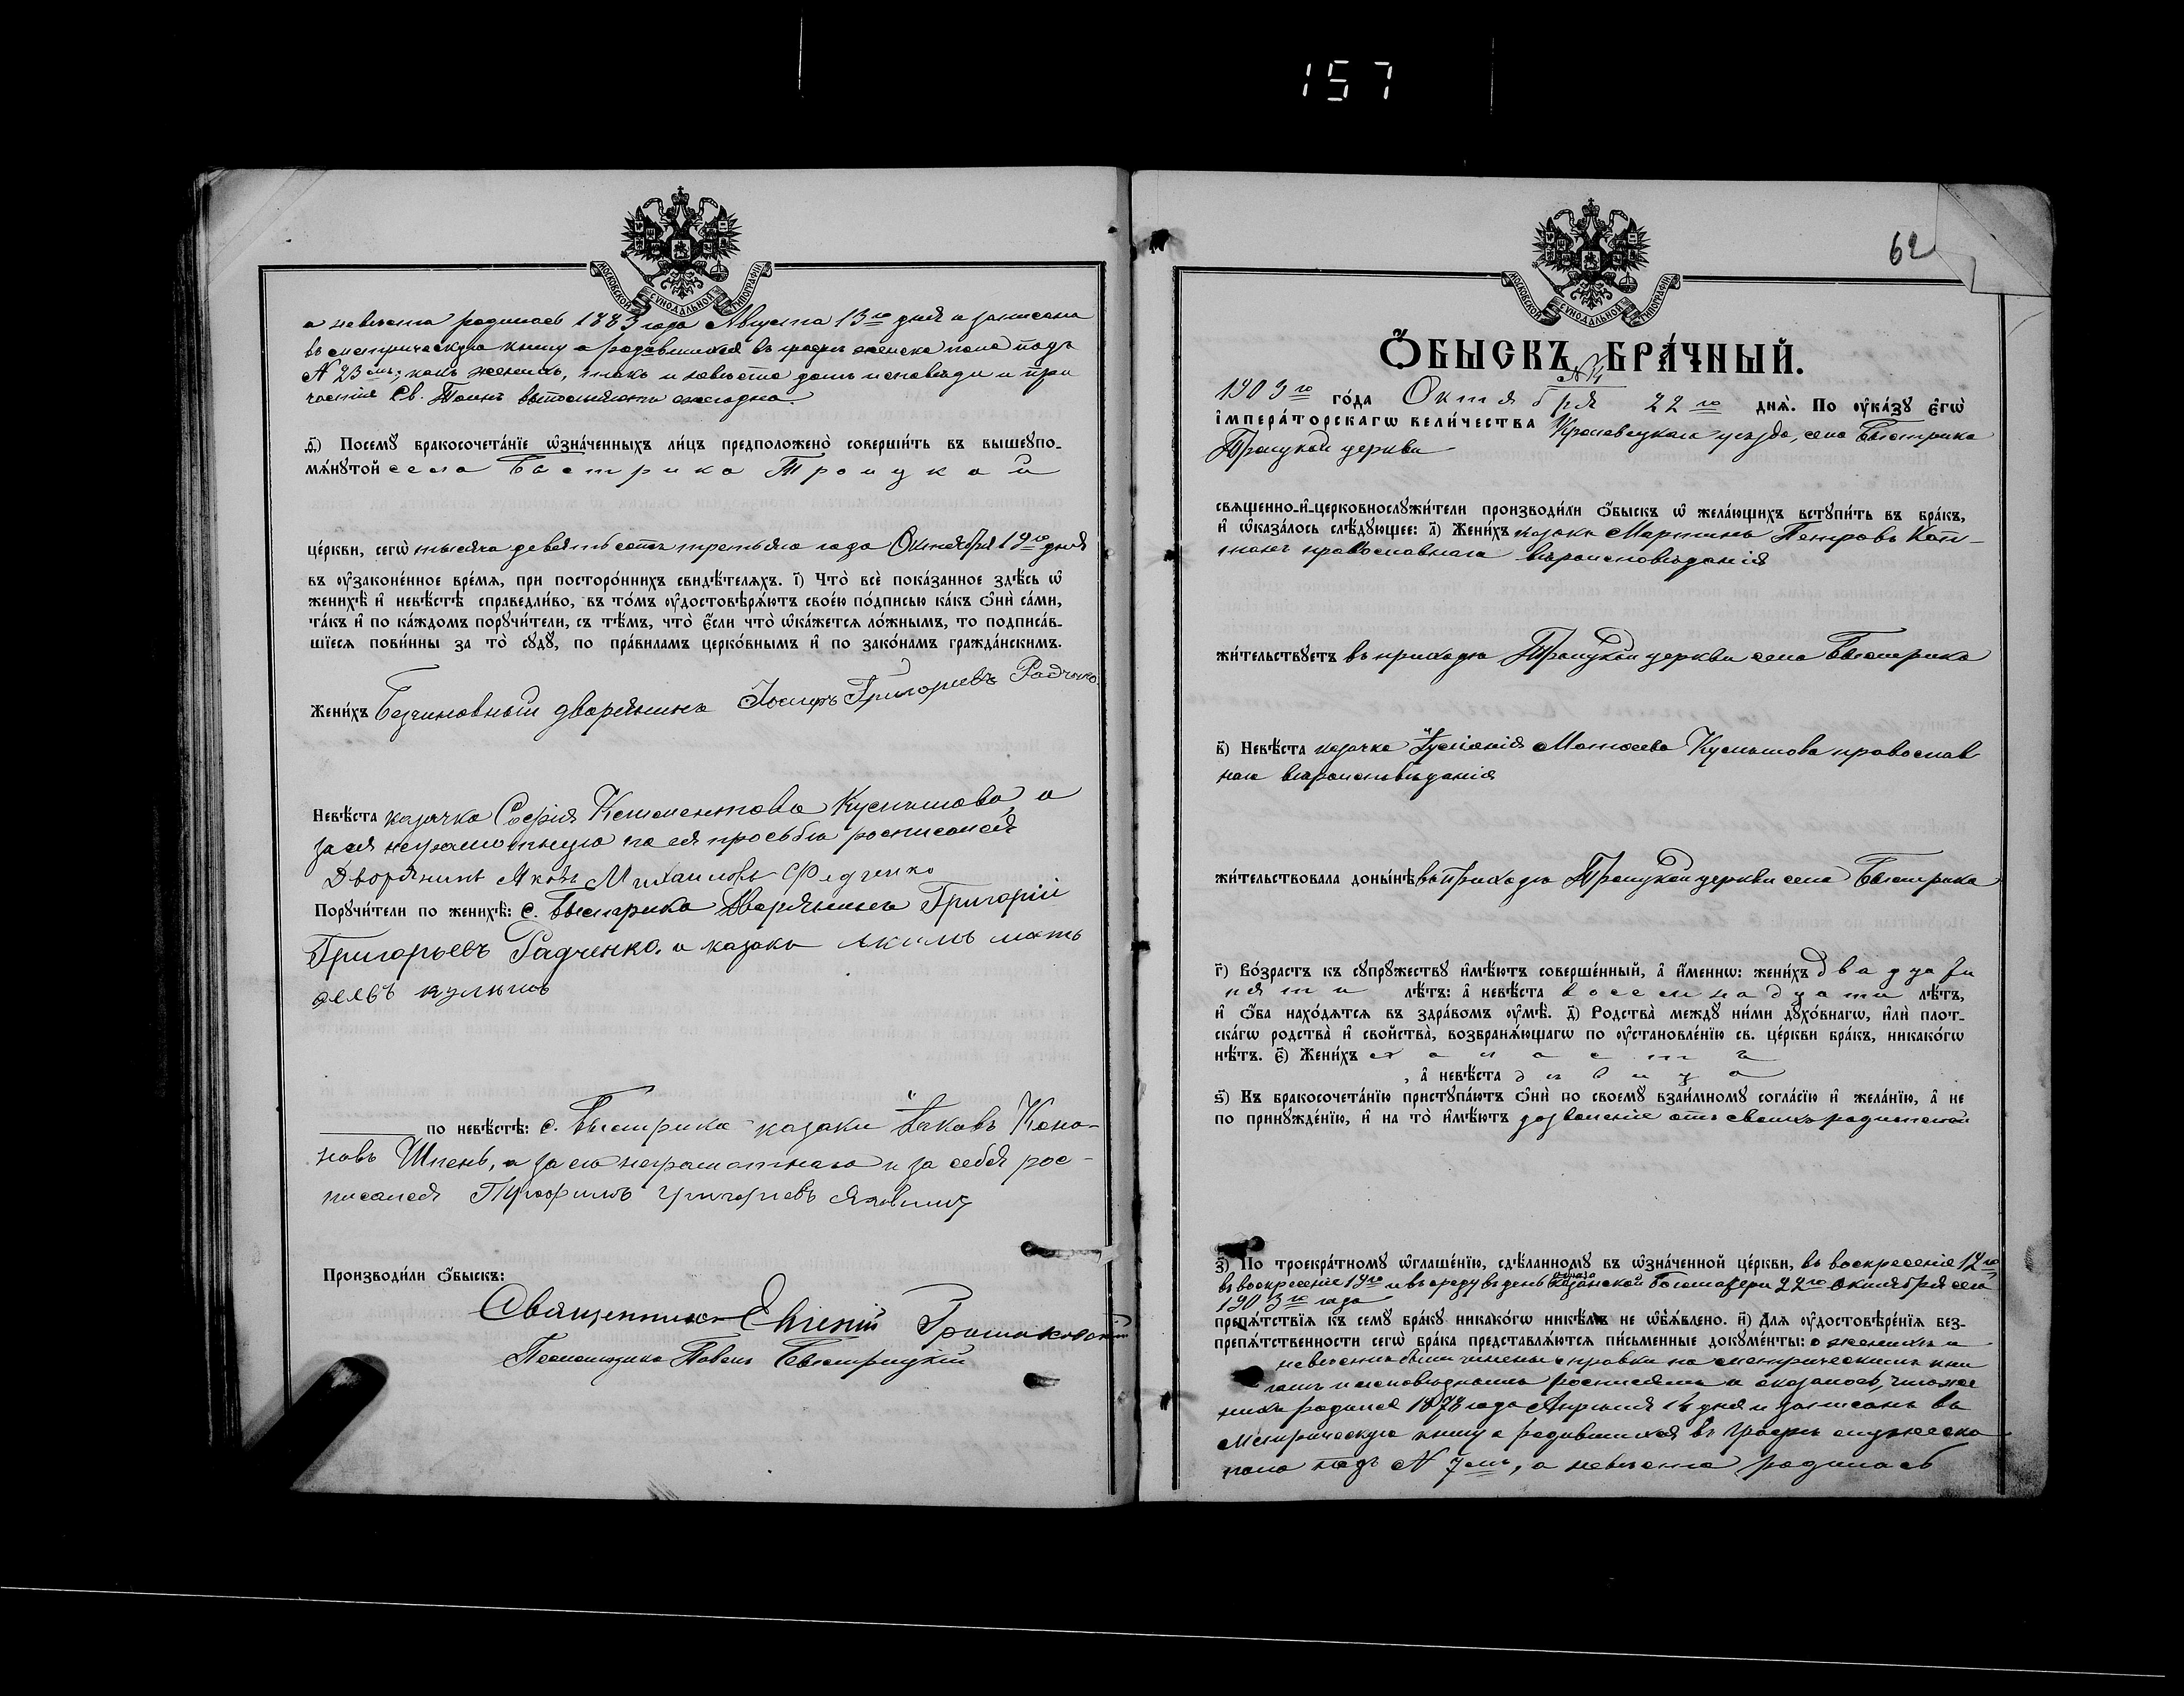 157
МОСКОВСКОЙ СУНОДАЛЬНОЙ ТИПОГРАФІИ
а невѣста родилась 1883 года Августа 13го дня и записана
въ метрическую книгу о родившихся въ графѣ женска пола подъ
№ 23мъ; какъ женихъ, такъ и невѣста долгъ исповѣди и при
частія Св. Таинъ выполняютъ ежегодно.
д҃) Посемꙋ бракосочета́нїе ѡ҆зна́ченныхъ ли́цъ предположено̀ соверши́ть въ вышеꙋпо-
мѧ́нꙋтой села Быстрика Троицкой
це́ркви, сегѡ̀ тысяча девятьсотъ третьяго года Октября 19го дня
въ ᲂу҆законе́нное вре́мѧ, при посторо́ннихъ свидѣ́телѧхъ. і҃) Что̀ всѐ пока́занное здѣ́сь ѡ҆
женихѣ̀ и҆ невѣ́стѣ справедли́во, въ то́мъ ᲂу҆достовѣрѧ́ютъ свое́ю по́дписью ка́къ ѻ҆нѝ са́ми,
та́къ и҆ по ка́ждомъ порꙋчи́тели, съ тѣ́мъ, что̀ є҆́сли что̀ ѡ҆ка́жетсѧ ло́жнымъ, то подписа́в-
шїесѧ пови́нны за то̀ сꙋдꙋ̀, по пра́виламъ церко́внымъ и҆ по зако́намъ гражда́нскимъ.
Жени́хъ Безчиновный дворянинъ Іосифъ Григорьевъ Радченко.
Невѣ́ста казачка Софія Климентова Кулишова, а
за ея неграмотную по ея просьбѣ росписался
Дворянинъ Яковъ Михаиловъ Федченко
Порꙋчи́тели по женихѣ̀: с. Быстрика Дворянинъ Григорій
Григорьевъ Радченко. и казакъ Акимъ мать
по невѣ́стѣ: с. Быстрика казаки Іаковъ Коно-
новъ Шпень, а за его неграмотнаго и за себя рос-
писался Григориевъ
Производи́ли ѻ҆́быскъ:
Священникъ Евгеній
Псаломщикъ Павелъ Быстрицкій
62
МОСКОВСКОЙ СУНОДАЛЬНОЙ ТИПОГРАФІИ
Ѻ҆́БЫСКЪ БРА́ЧНЫЙ.
1903го го́да Октября 22го днѧ̀. По ᲂу҆ка́зꙋ є҆гѡ̀
і҆мпера́торскагѡ вели́чества Кролевецкаго уѣзда, села Быстрика
Троицкой церкви
свѧщенно-и҆-церковнослꙋжи́тели производи́ли ѻ҆́быскъ ѡ҆ жела́ющихъ встꙋпи́ть въ бра́къ,
и҆ ѡ҆каза́лось слѣ́дꙋющее: а҃) Жени́хъ казакъ Мартинъ Петровъ Кап-
танъ православнаго вѣроисповѣданія
жи́тельствꙋетъ въ приходѣ Троицкой церкви села Быстрика
в҃) Невѣ́ста казачка Матѳеева Кулишова православ
наго вѣроисповѣданія
жи́тельствовала доны́нѣ въ приходѣ Троицкой церкви села Быстрика
г҃) Во́зрастъ къ сꙋпрꙋ́жествꙋ и҆мѣ́ютъ соверше́нный, а҆ и҆́менно: жени́хъ двадцати
пяти лѣ́тъ: а҆ невѣ́ста восемнадцати лѣ́тъ,
и҆ ѻ҆́ба нахо́дѧтсѧ въ здра́вомъ ᲂу҆мѣ̀. д҃) Родства̀ междꙋ̀ ни́ми дꙋхо́внагѡ, и҆лѝ плот-
ска́гѡ родства̀ и҆ свойства̀, возбранѧ́ющагѡ по ᲂу҆становле́нїю св. це́ркви бра́къ, никако́гѡ
нѣ́тъ. є҃) Жени́хъ холостъ
, а҆ невѣ́ста дѣвица
ѕ҃) Къ бракосочета́нїю пристꙋпа́ютъ ѻ҆нѝ по своемꙋ̀ взаи́мномꙋ согла́сїю и҆ жела́нїю, а҆ не
по принꙋжде́нїю, и҆ на то̀ и҆мѣ́ютъ дозволеніе отъ своихъ родителей
з҃) По троекра́тномꙋ ѡ҆глаше́нїю, сдѣ́ланномꙋ въ ѡ҆зна́ченной це́ркви, въ воскресеніе 12го
въ воскресеніе 19го и въ среду въ день Казанской Богоматери 22го Октября сего
1903го года
препѧ́тствїѧ къ семꙋ̀ бра́кꙋ никако́гѡ никѣ́мъ не ѡ҆б̾ѧ́влено. и҃) Длѧ ᲂу҆достовѣре́нїѧ без-
препѧ́тственности сегѡ̀ бра́ка представлѧ́ютсѧ пи́сьменные докꙋме́нты: о женихѣ и
невѣстѣ были чинены справки по метрическимъ кни
гамъ и исповѣднымъ росписямъ и оказалось, что же
нихъ родился 1878 года Апрѣля 14 дня и записанъ въ
Метрическую книгу о родившихся въ графѣ мужеска
пола подъ № 7мъ, а невѣста родилась